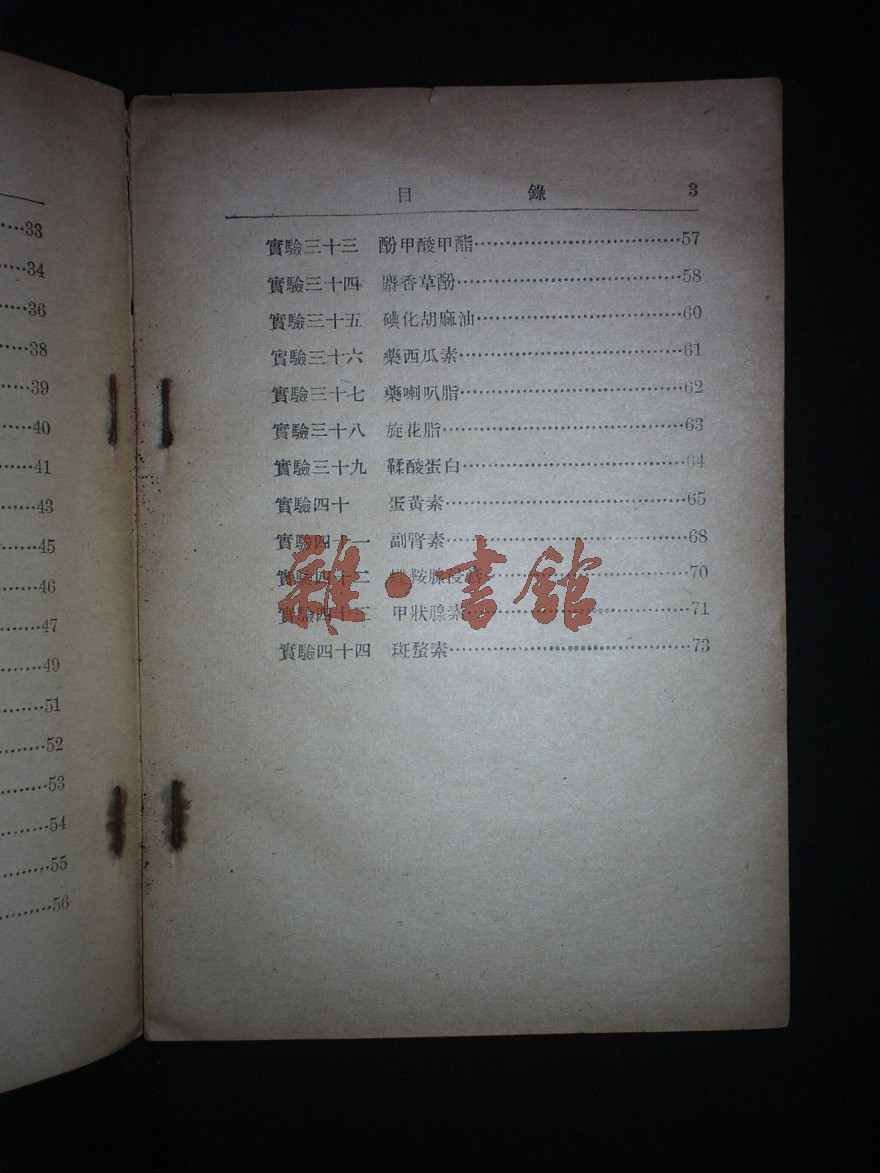 33
34
36
38
39
40
41
43
45
46
47
49
51
52
53
54
55
56
目 錄 3
實驗三十三 酚甲酸甲酯……………………………57
實驗三十四 麝香草酚………………………………58
實驗三十五 碘化胡麻油……………………………60
實驗三十六 藥西瓜素………………………………61
實驗三十七 藥喇叭脂………………………………62
實驗三十八 旋花脂…………………………………63
實驗三十九 鞣酸蛋白………………………………64
實驗四十 蛋黃素…………………………………65
實驗四十一 副腎素…………………………………68
實驗四十二 鞍腺浸膏……………………………70
實驗四十三 甲狀腺素………………………………71
實驗四十四 斑蝥素…………………………………73
雜·書館